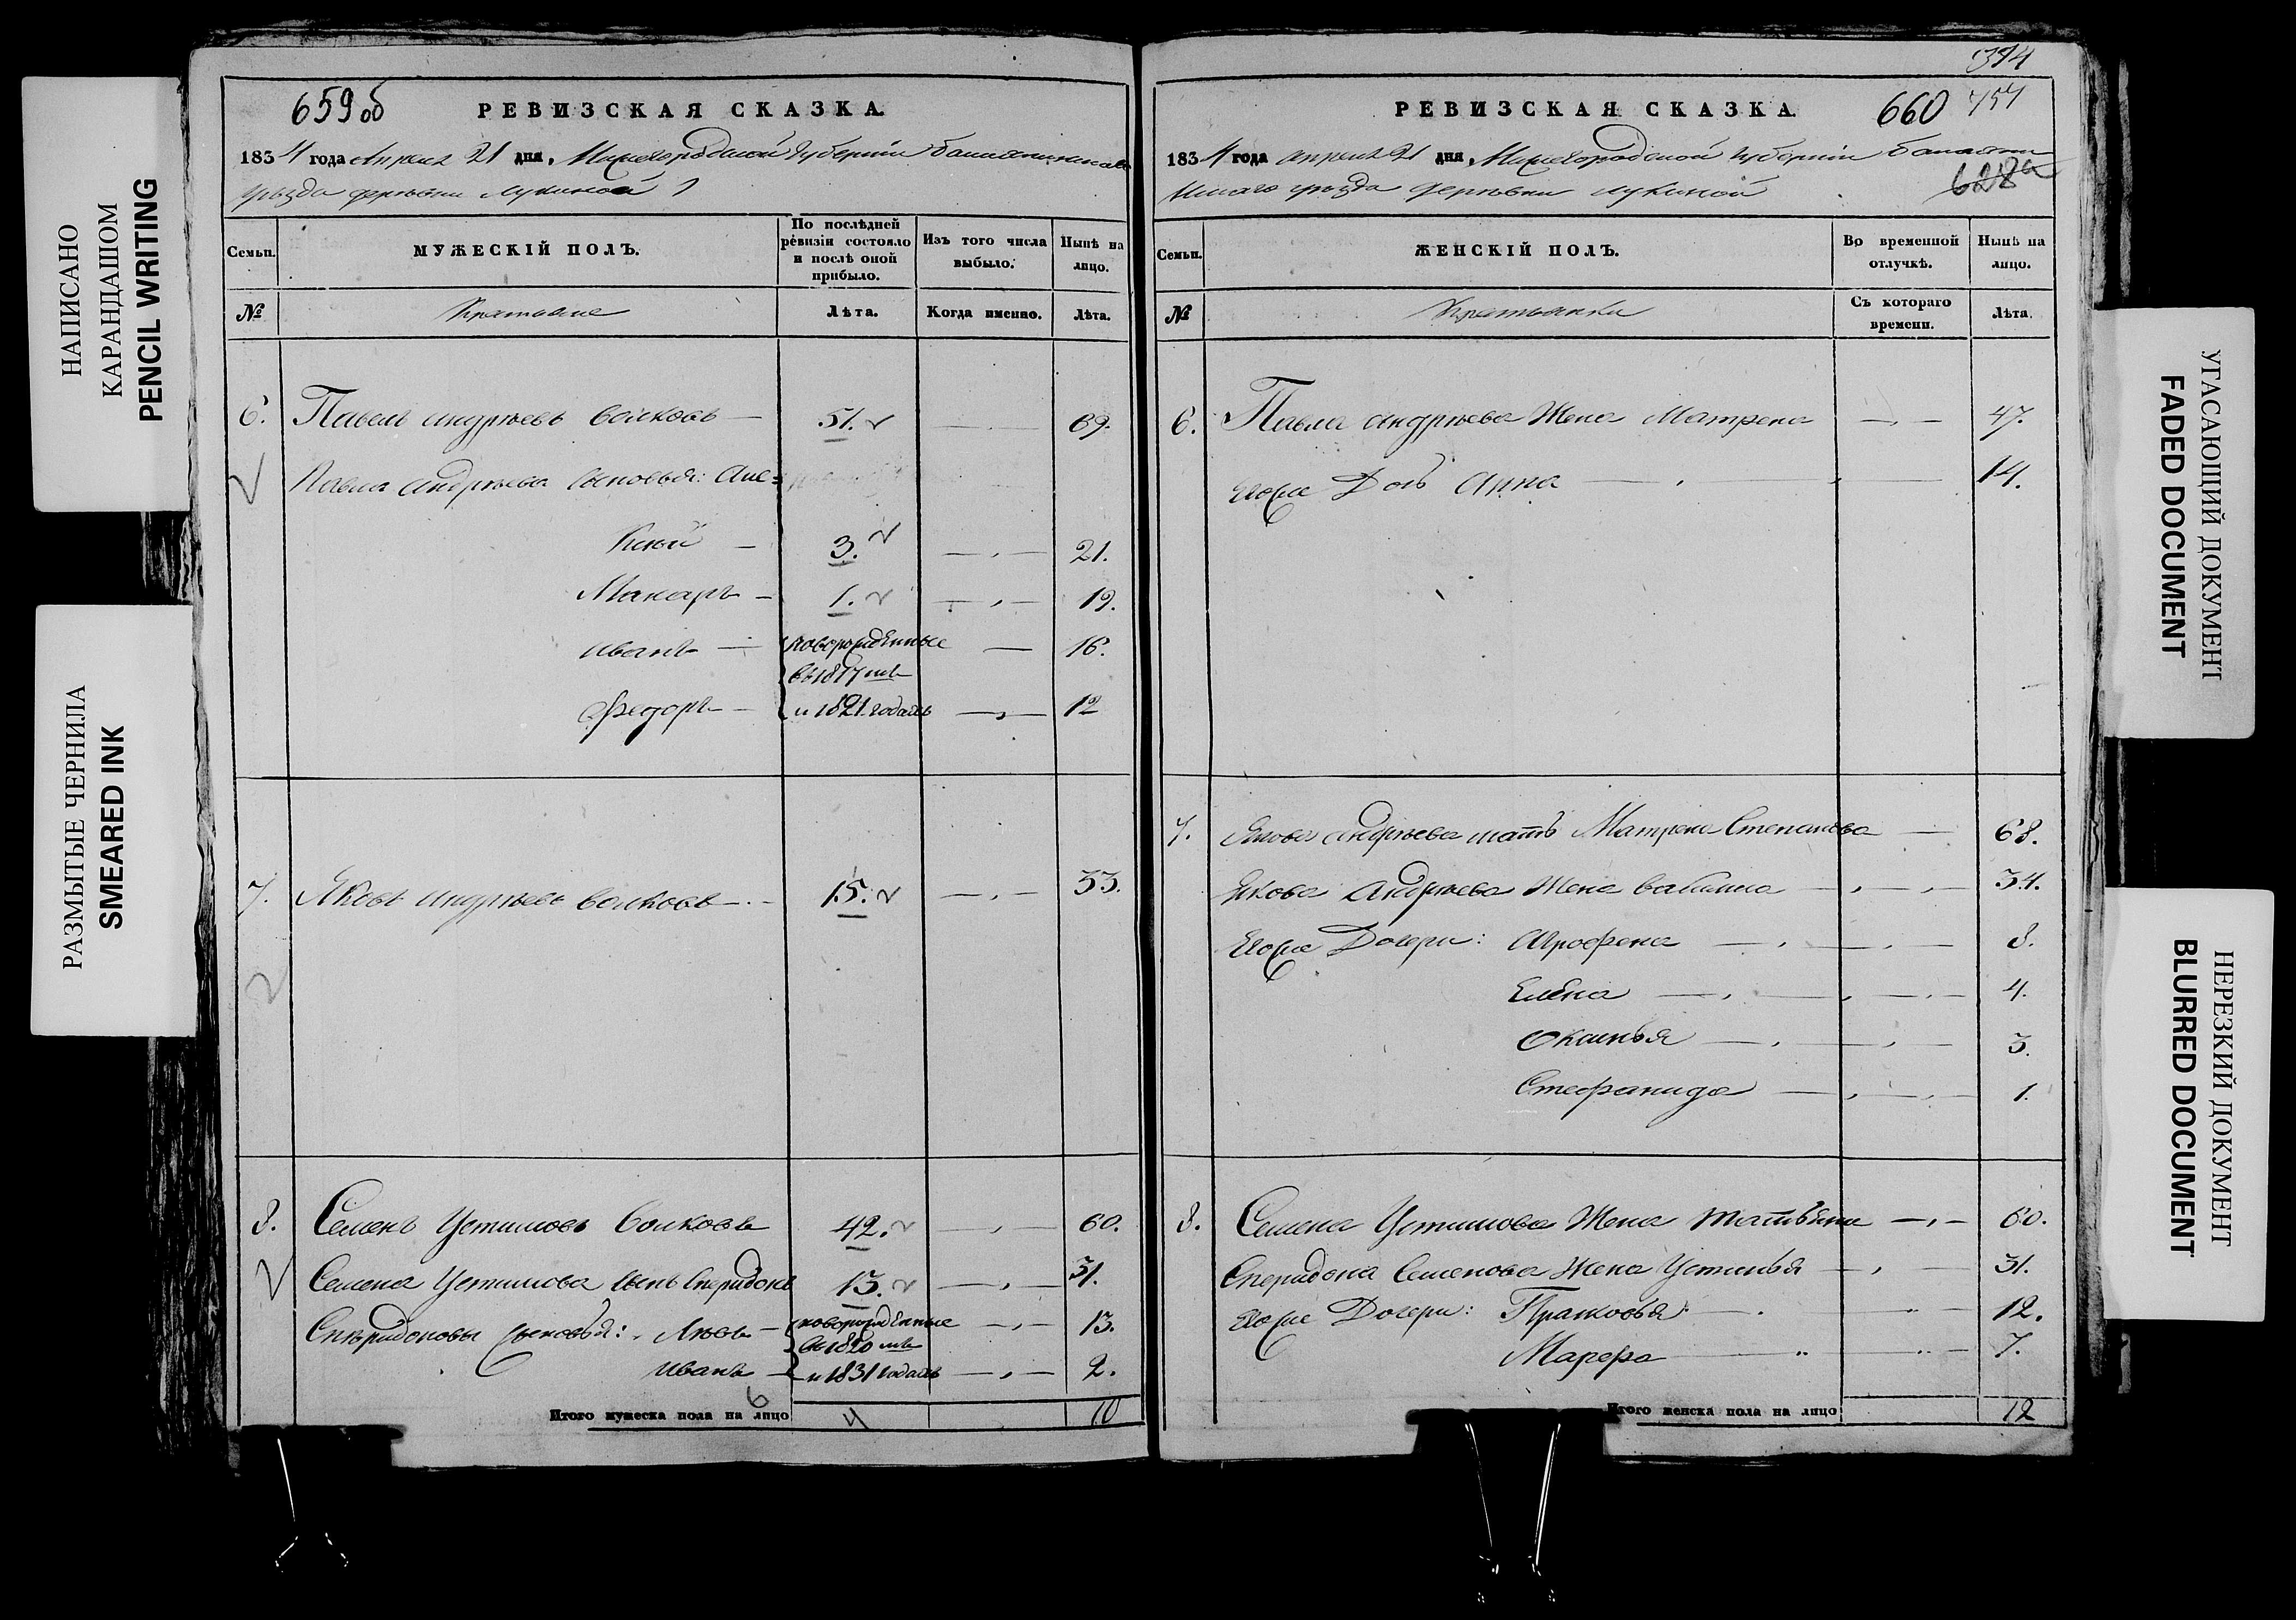 НАПИСАНО
КАРАНДАШОМ
PENCIL WRITING
РАЗМЫТЫЕ ЧЕРНИЛА
SMEARED INK
659об
РЕВИЗСКАЯ СКАЗКА.
1834 года Апреля 21 дня, Нижегородской Губернии
уезда деревни Лукиной
Семьи.
МУЖЕСКІЙ ПОЛЪ.
По послѣдней ревизіи состояло и послѣ оной прибыло.
Изъ того числа выбыло.
Нынѣ на лицо.
№
Крестьяне
Лѣта.
Когда именно.
Лѣта.
6. Павелъ Андрѣевъ Волковъ 51. 69.
Павла Андрѣева сыновья: Але=
ксѣй 3. 21.
Макаръ 1. 19.
Иванъ новорожденные 16.
въ 1817 мъ
Федоръ и 1821 годахъ 12
7. Яковъ Андрѣевъ Волковъ 15. 33.
8. Семенъ Устимовъ Волковъ 42. 60.
Семена Устимова сынъ Спиридонъ 13. 31.
Спиридоновы сыновья: Левъ новорожденные 13.
въ 1820 мъ
Иванъ и 1831 годахъ 2.
6
Итого мужеска пола на лицо 10
374
РЕВИЗСКАЯ СКАЗКА.
660 757
1834 года Апреля 21 дня, Нижегородской Губернии
уезда деревни Лукиной
628
Семьи.
ЖЕНСКІЙ ПОЛЪ.
Во временной отлучкѣ.
Нынѣ на лицо.
№
Крестьянки
Съ котораго времени.
Лѣта.
6. Павла Андрѣева Жена Матрена 47.
Егоже Дочь Анна 14.
7. Якова Андрѣева мать Матрена Степанова 68.
Якова Андрѣева Жена 34.
Егоже Дочери: Арофена 8.
Елена 4.
Оксинья 3.
Стефанида 1.
8. Семена Устимова Жена 60.
Спиридона Семенова Жена Устинья 31.
Егоже Дочери: Прасковья 12.
Марфа 7.
Итого женска пола на лицо 12
УГАСАЮЩИЙ ДОКУМЕНТ
FADED DOCUMENT
НЕРЕЗКИЙ ДОКУМЕНТ
BLURRED DOCUMENT